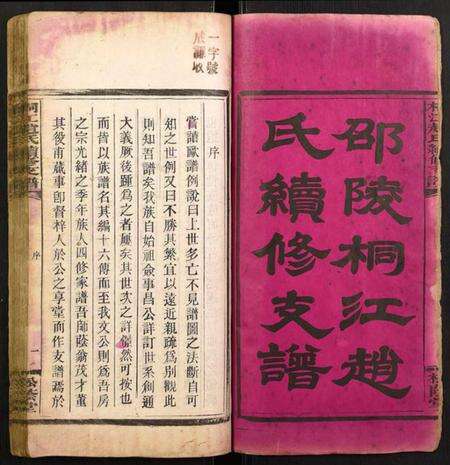 邵陵桐江趙
氏續修支譜
一字號
序
嘗讀歐譜例說曰上世多亡不見譜圖之法斷自可
知之世例又曰不勝其繁宜以遠近親疏為別觀此
則知吾譜矣我族自始祖僉事昌公詳訂世系創通
大義厥後踵為之者屢矣其世次之詳儼然可按也
而皆以族譜名其編十六傳而至我文公則為吾房
之宗光緒之季年族人四修家譜吾師蔭翁茂才董
其役甫蕆事卽督梓人於公之享堂而作支譜焉於
序
一